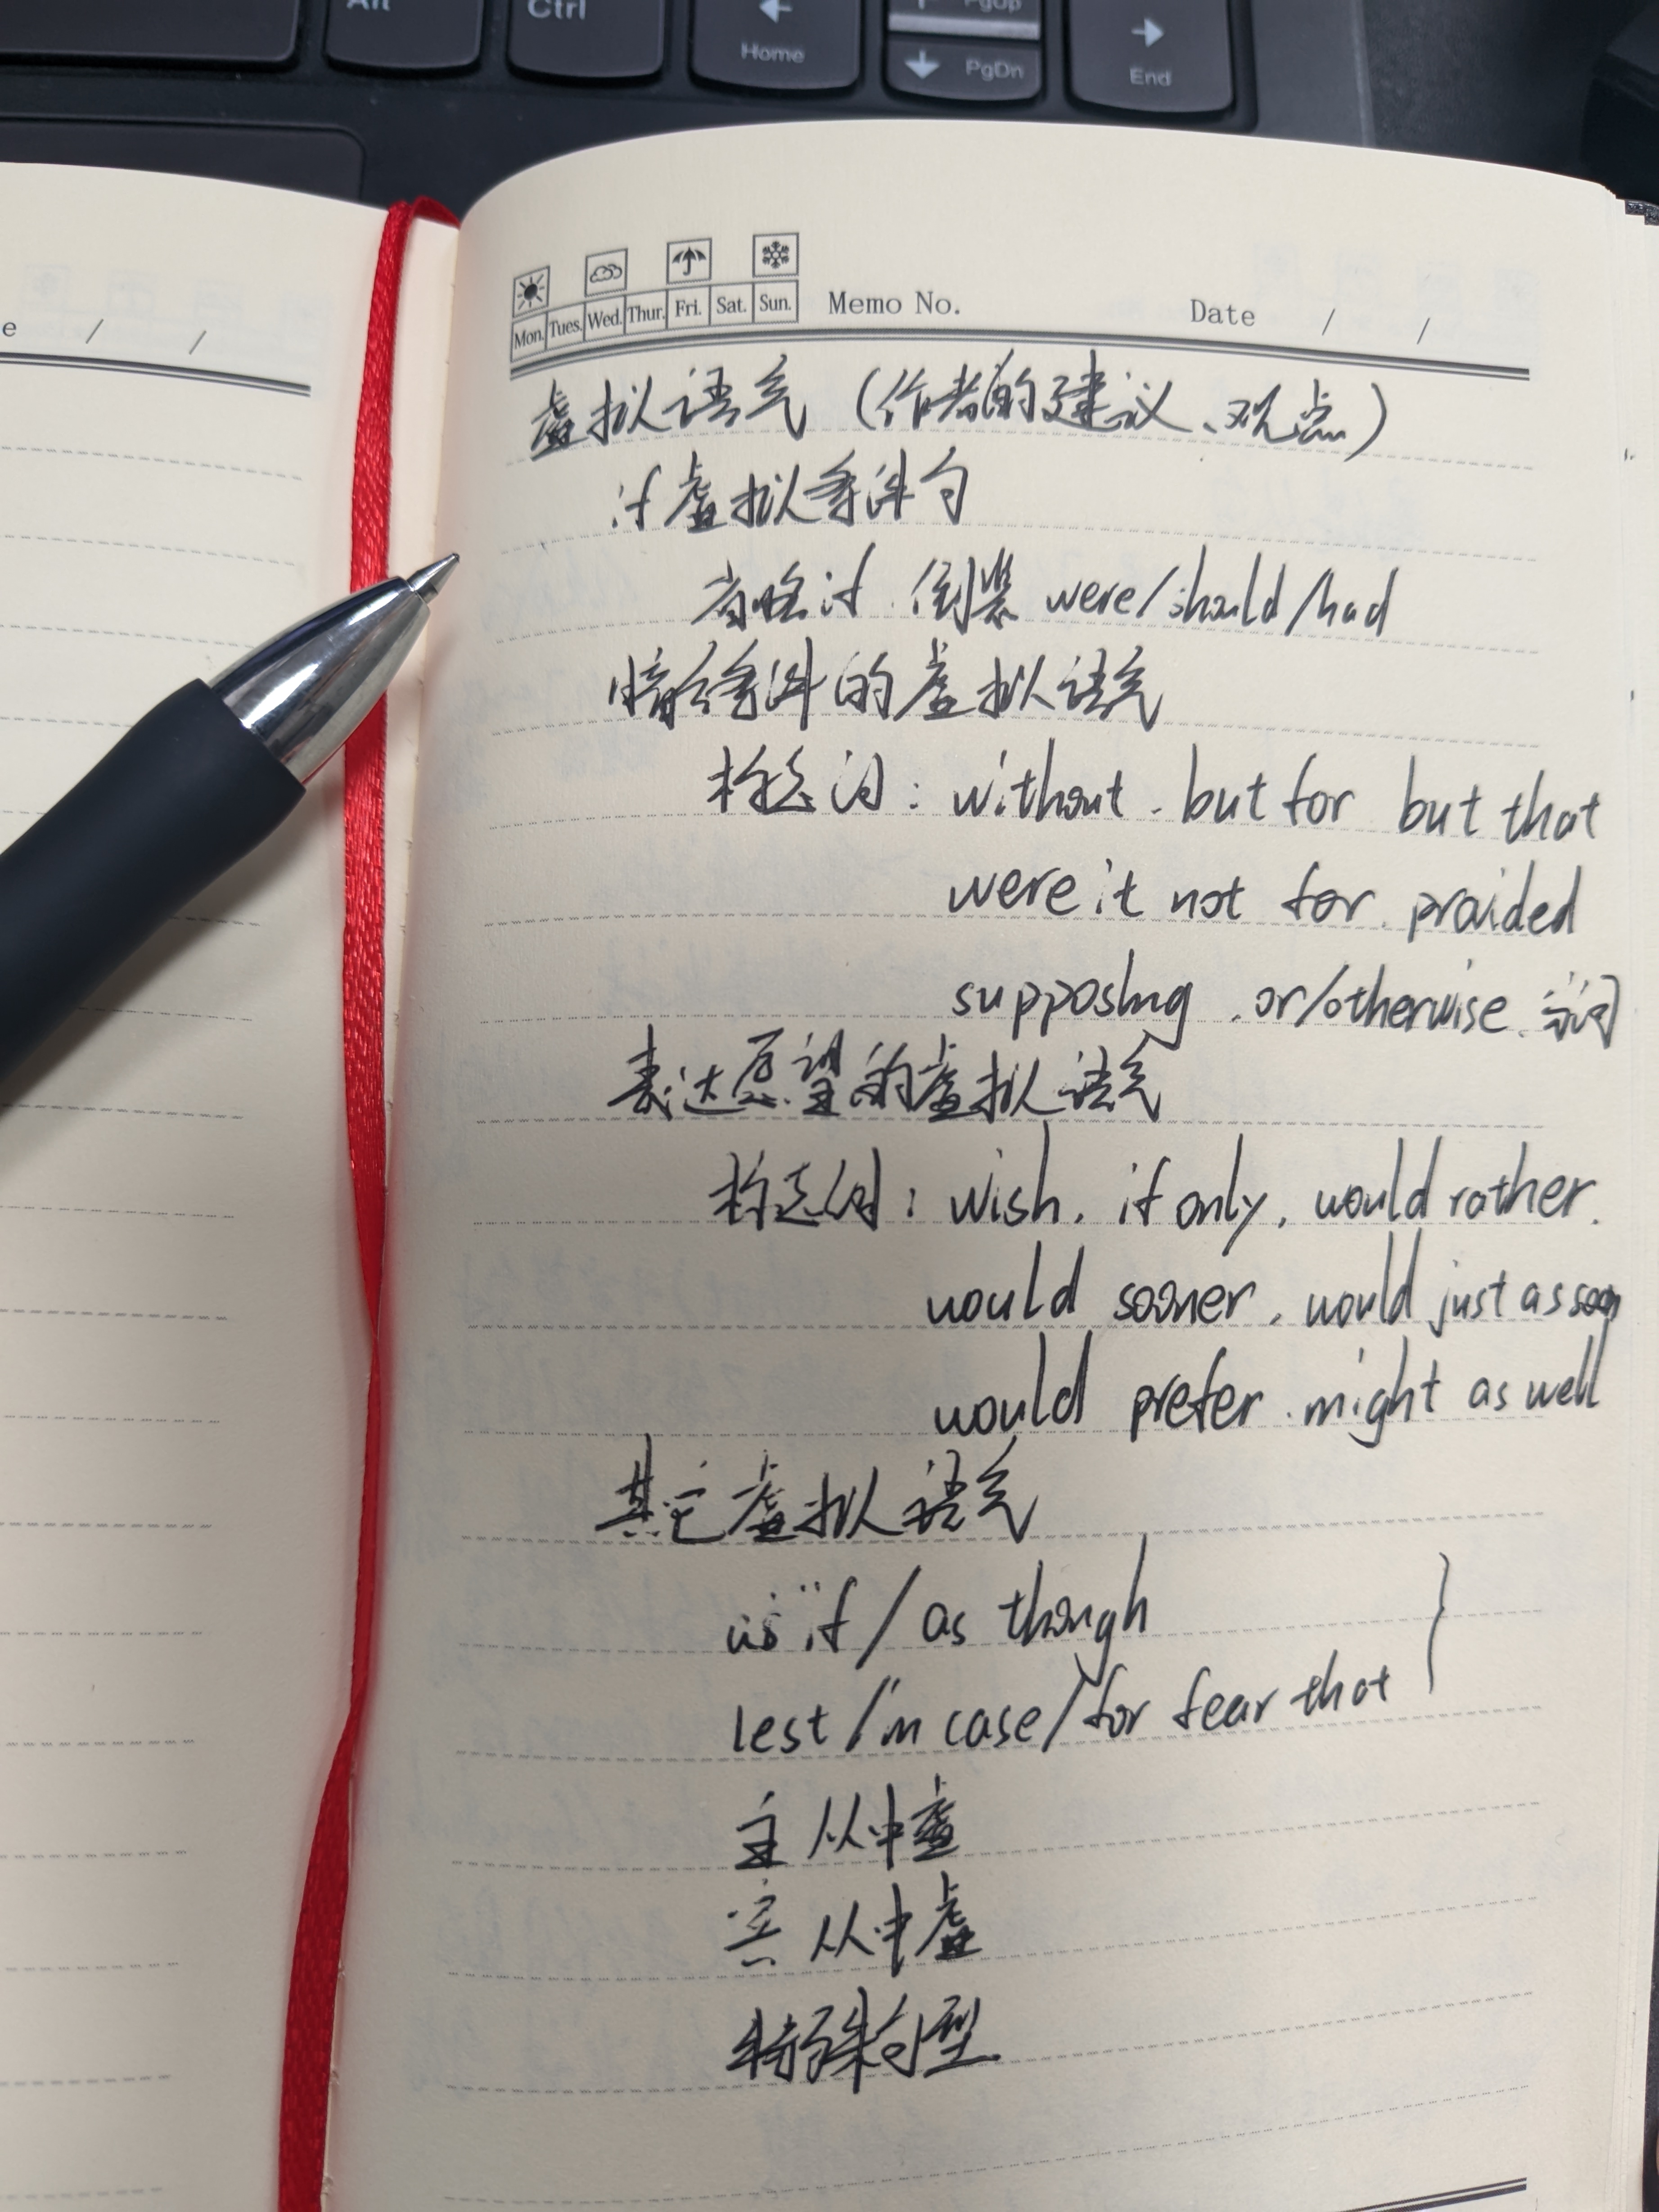 Alt Ctrl Home PgUp PgDn End
e / /
Mon. Tues. Wed. Thur. Fri. Sat. Sun. Memo No. Date / /
虚拟语气（作者的建议、观点）
if虚拟条件句
省略if 倒装 were/should/had
暗含条件的虚拟语气
标志词：without. but for but that
were it not for. provided
supposing .or/otherwise.
表达愿望的虚拟语气
标志词：wish, if only, would rather.
would sooner, would just as soon
would prefer. might as well
其它虚拟语气
as if/as though
lest/in case/for fear that
主从中虚
宾从中虚
特殊句型.